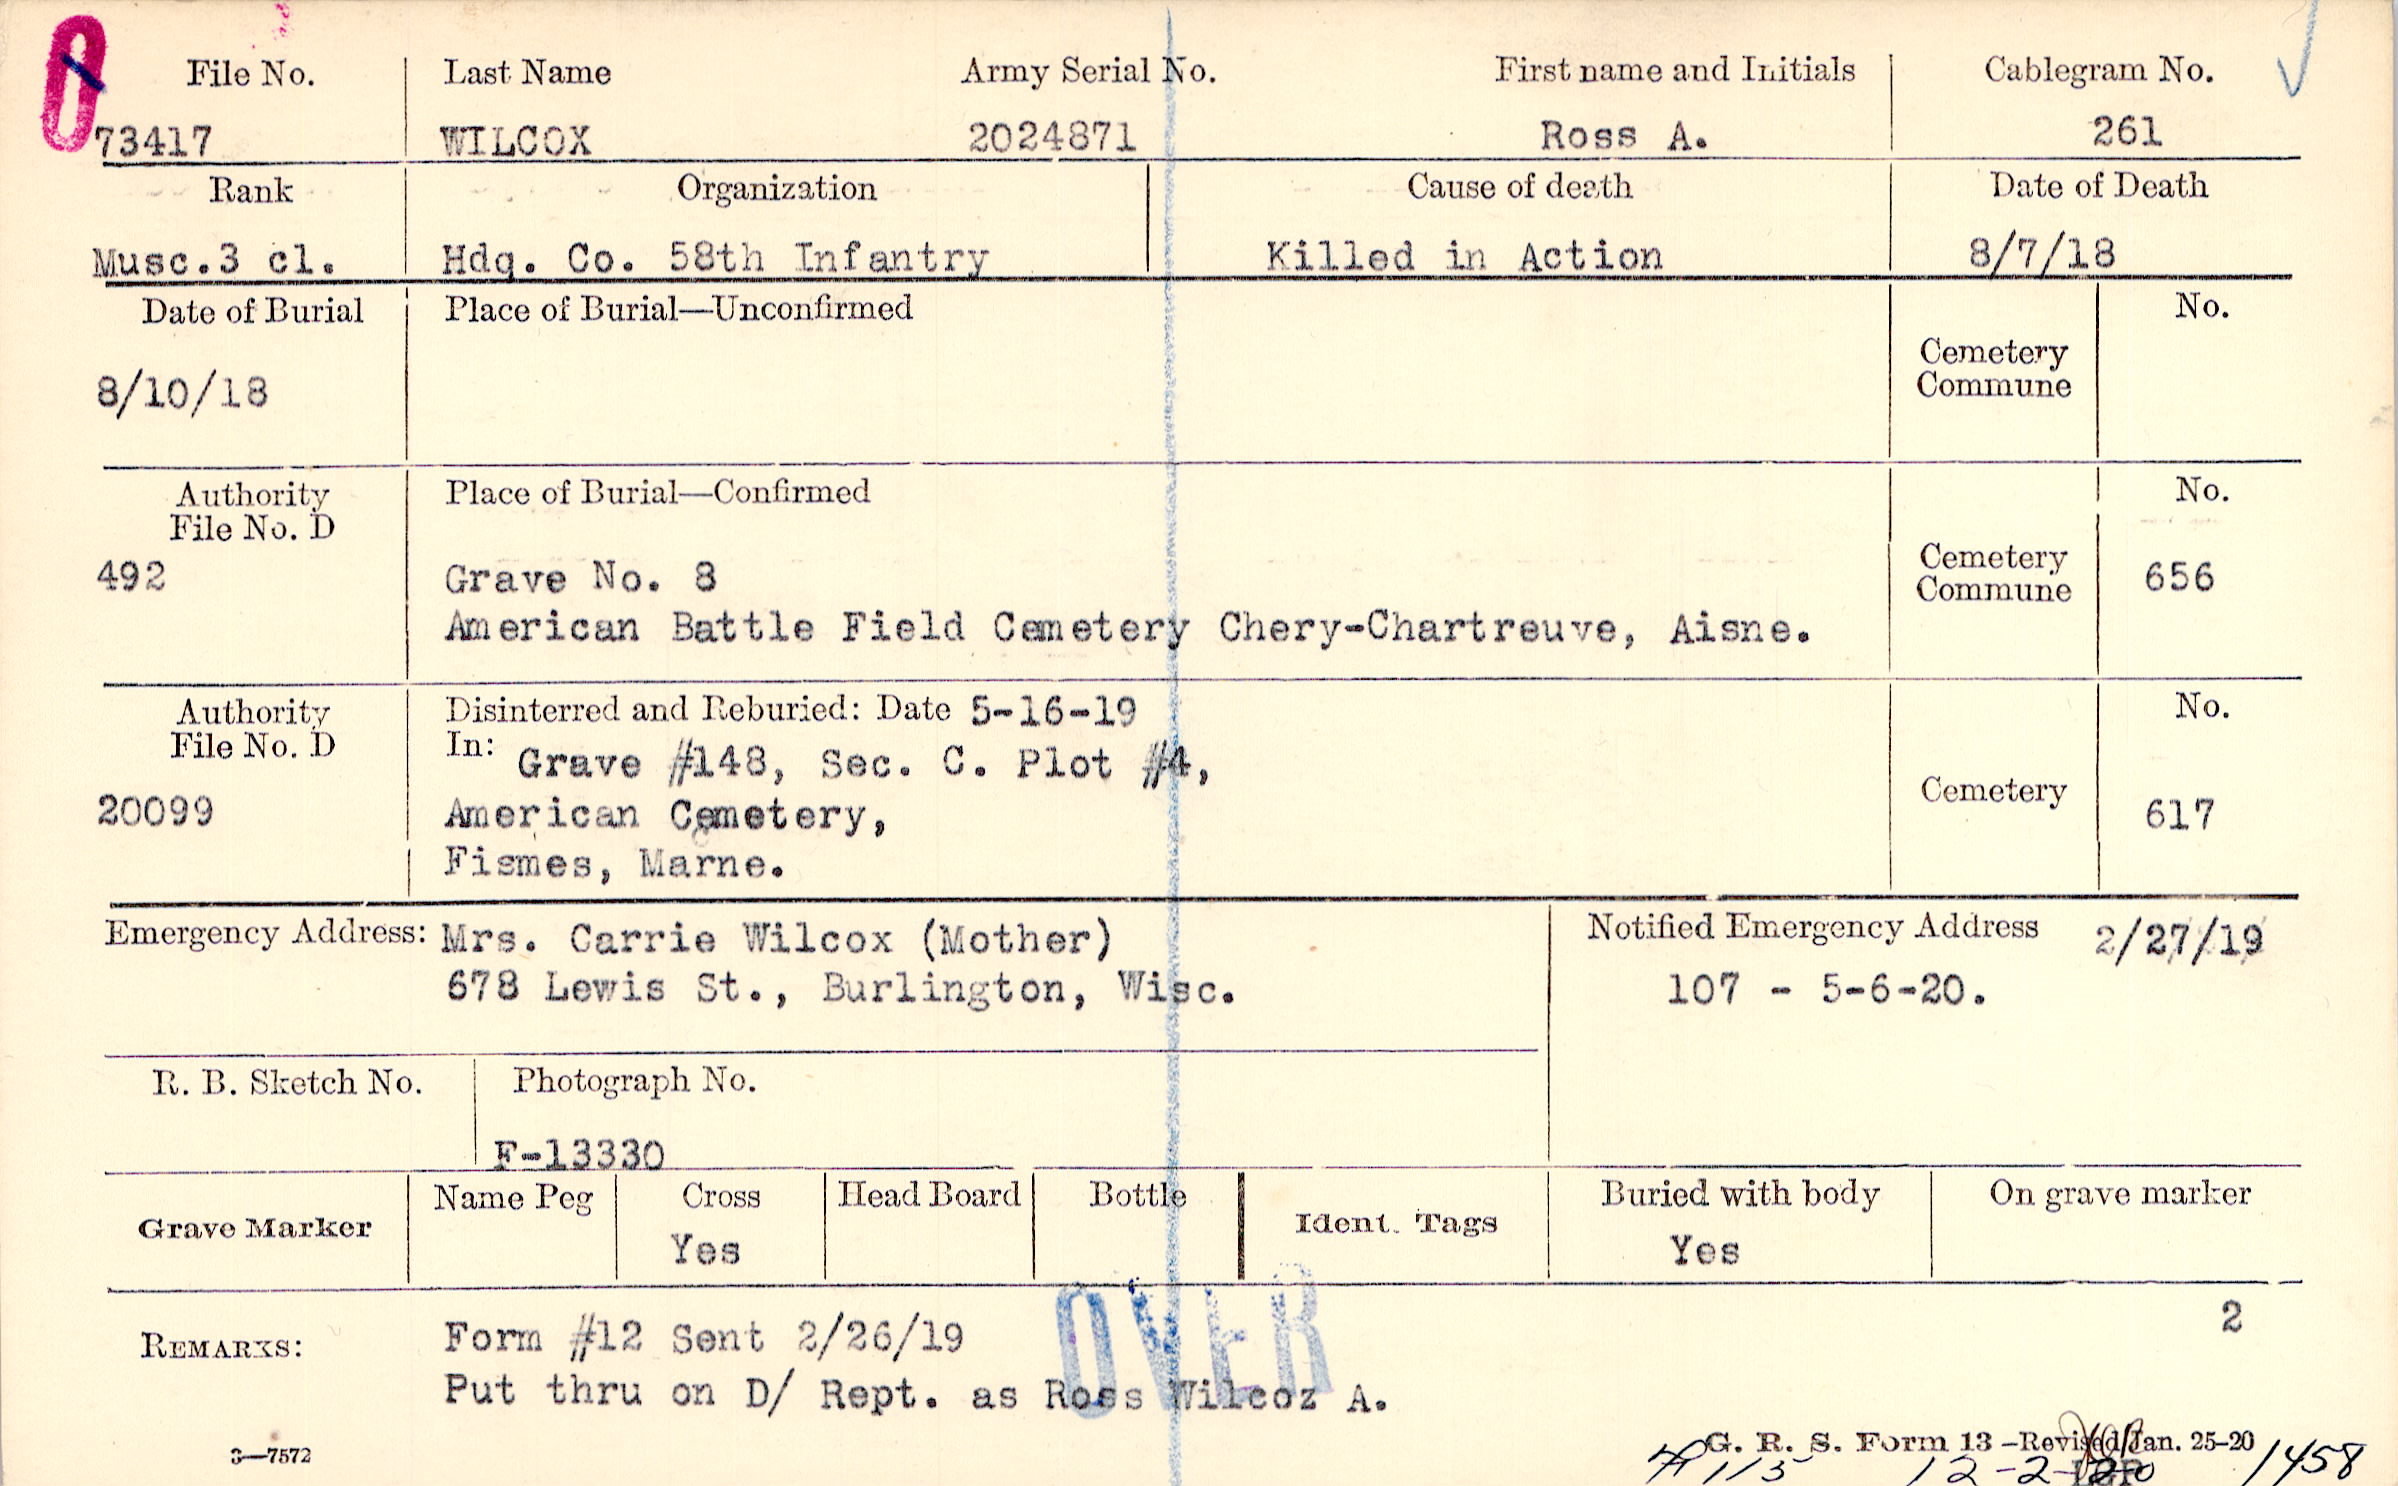 File No. Last Name Army Serial No. First name and Initials Cablegram No.
73417 WILCOX 2024871 Ross A. 261
Rank Organization Cause of death Date of Death
Musc.3 cl. Hdq. Co. 58th Infantry Killed in Action 8/7/18
Date of Burial Place of Burial—Unconfirmed No.
Cemetery
Commune
8/10/18
Authority Place of Burial—Confirmed No.
File No. D
Cemetery
Commune
492 Grave No. 8 656
American Battle Field Cemetery Chery-Chartreuve, Aisne.
Authority Disinterred and Reburied: Date 5-16-19 No.
File No. D In: Grave #148, Sec. C. Plot #4,
Cemetery
20099 American Cemetery, 617
Fismes, Marne.
Emergency Address: Mrs. Carrie Wilcox (Mother) Notified Emergency Address 2/27/19
678 Lewis St., Burlington, Wisc. 107 - 5-6-20.
R. B. Sketch No. Photograph No.
F-13330
Grave Marker Name Peg Cross Head Board Bottle Ident. Tags Buried with body On grave marker
Yes Yes
2
REMARKS: Form #12 Sent 2/26/19
OVER
Put thru on D/ Rept. as Ross Wilcoz A.
3—7572 G. R. S. Form 13—Revised Jan. 25-20
115 12-2-20 1458